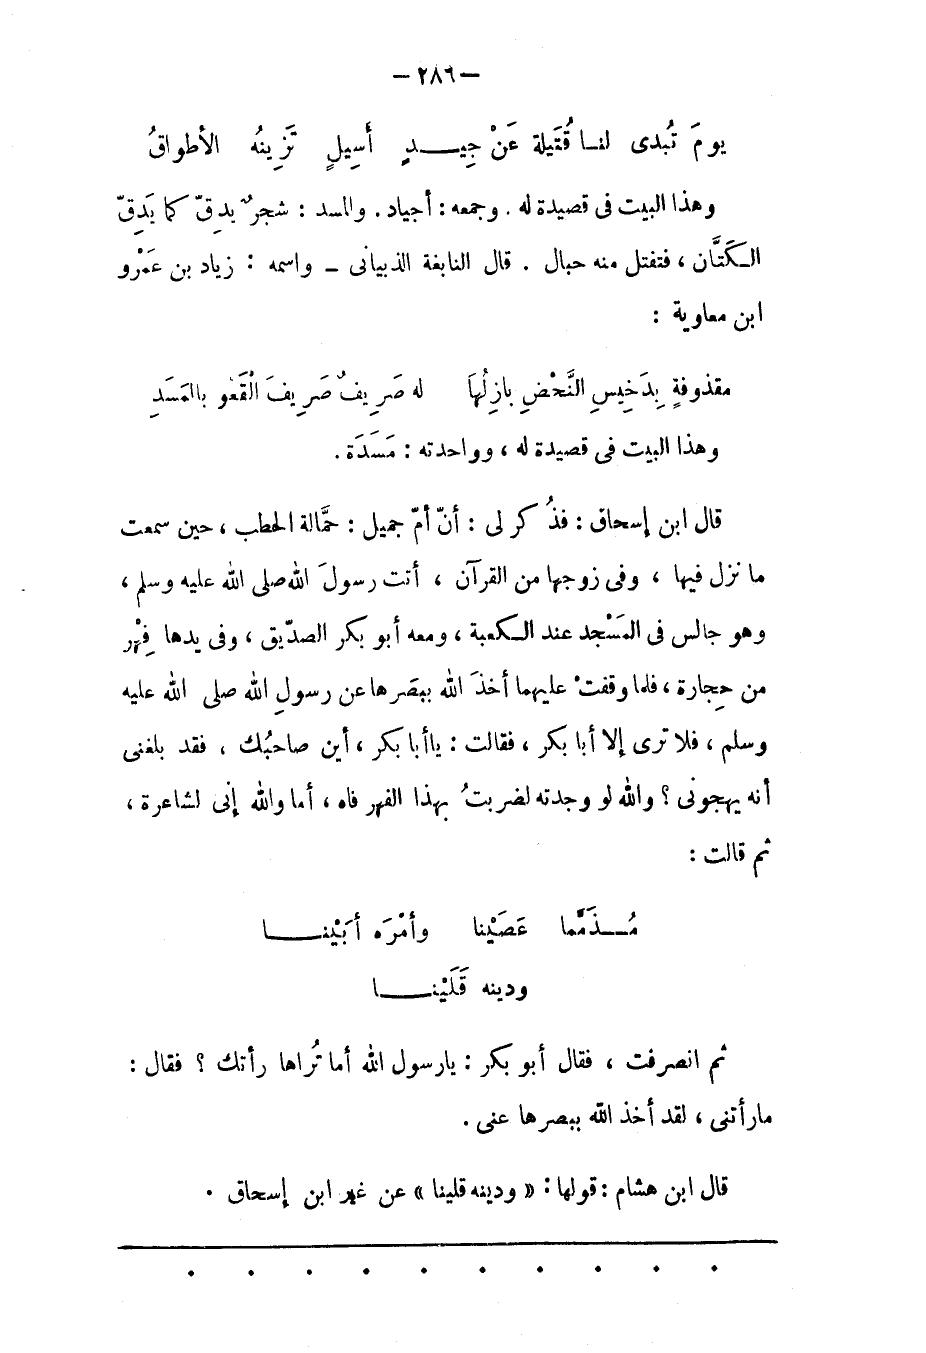 — ٢٨٦ —
يومَ تُبدى لنا قُتَيلة عَنْ جِيـــدٍ أَسِيلٍ تَزِينُه الأطواقُ
وهذا البيت فى قصيدة له . وجمعه : أجياد . والمسد : شجرٌ يدقّ كما يَدِقّ
الـكَتَّان ، فتفتل منه حبال . قال النابغة الذبيانى – واسمه : زياد بن عَمْرو
ابن معاوية :
مقذوفةٍ بِدَخِيسِ النَّحْضِ بازِلُهَا له صَرِيفٌ صَرِيفَ الْقَعْو بالمَسَدِ
وهذا البيت فى قصيدة له ، وواحدته : مَسَدَة .
قال ابن إسحاق : فذُكر لى : أنّ أمّ جميل : حمَّالة الحطب ، حين سمعت
ما نزل فيها ، وفى زوجها من القرآن ، أتت رسولَ الله صلى الله عليه وسلم ،
وهو جالس فى المَسْجد عند الـكعبة ، ومعه أبو بكر الصدّيق ، وفى يدها فِهْر
من حِجارة ، فلما وقفتْ عليهما أخذَ الله ببَصَرها عن رسولِ الله صلى الله عليه
وسلم ، فلا ترى إلا أبا بكر ، فقالت : ياأبا بكر ، أين صاحبُك ، فقد بلغنى
أنه يهجونى ؟ والله لو وجدته لضربتُ بهذا الفهر فاه ، أما والله إنى لشاعرة ،
ثم قالت :
مُـــذَمَّما عَصَيْنا وأمْرَه أبَيْنـــــا
ودينه قَلَيْنـــــا
ثم انصرفت ، فقال أبو بكر : يارسول الله أما تُراها رأتك ؟ فقال :
مارأتنى ، لقد أخذ الله ببصرها عنى .
قال ابن هشام : قولها : « ودينه قلينا » عن غير ابن إسحاق .
. . . . . . . . . .